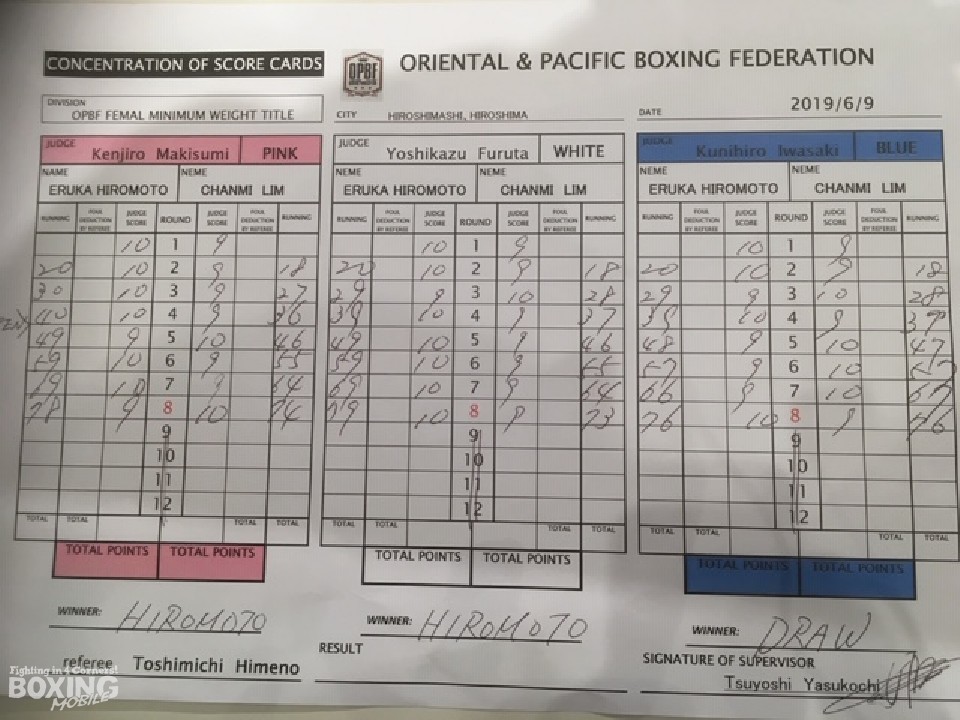 CONCENTRATION OF SCORE CARDS
OPBF
ORIENTAL & PACIFIC BOXING FEDERATION
DIVISION OPBF FEMAL MINIMUM WEIGHT TITLE CITY HIROSHIMASHI, HIROSHIMA DATE 2019/6/9
JUDGE Kenjiro Makisumi PINK JUDGE Yoshikazu Furuta WHITE JUDGE Kunihiro Iwasaki BLUE
NAME NEME NEME NEME NEME NEME
ERUKA HIROMOTO CHANMI LIM ERUKA HIROMOTO CHANMI LIM ERUKA HIROMOTO CHANMI LIM
RUNNING FOUL DEDUCTION BY REFEREE JUDGE SCORE ROUND JUDGE SCORE FOUL DEDUCTION BY REFEREE RUNNING RUNNING FOUL DEDUCTION BY REFEREE JUDGE SCORE ROUND JUDGE SCORE FOUL DEDUCTION BY REFEREE RUNNING RUNNING FOUL DEDUCTION BY REFEREE JUDGE SCORE ROUND JUDGE SCORE FOUL DEDUCTION BY REFEREE RUNNING
10 1 9 10 1 9 10 1 9
20 10 2 9 18 20 10 2 9 18 20 10 2 9 18
30 10 3 9 27 29 9 3 10 28 29 9 3 10 28
40 10 4 9 36 39 10 4 9 37 39 10 4 9 37
49 9 5 10 46 49 10 5 9 46 48 9 5 10 47
59 10 6 9 55 59 10 6 9 55 57 9 6 10 57
69 10 7 9 64 69 10 7 9 64 66 9 7 10 67
78 9 8 10 74 79 10 8 9 73 76 10 8 9 76
9 9 9
10 10 10
11 11 11
12 12 12
TOTAL TOTAL TOTAL TOTAL TOTAL TOTAL TOTAL TOTAL TOTAL TOTAL TOTAL TOTAL
TOTAL POINTS TOTAL POINTS TOTAL POINTS TOTAL POINTS TOTAL POINTS TOTAL POINTS
WINNER: HIROMOTO WINNER: HIROMOTO WINNER: DRAW
referee Toshimichi Himeno RESULT SIGNATURE OF SUPERVISOR
Tsuyoshi Yasukochi
Fighting in 4 Corners!
BOXING
MOBILE